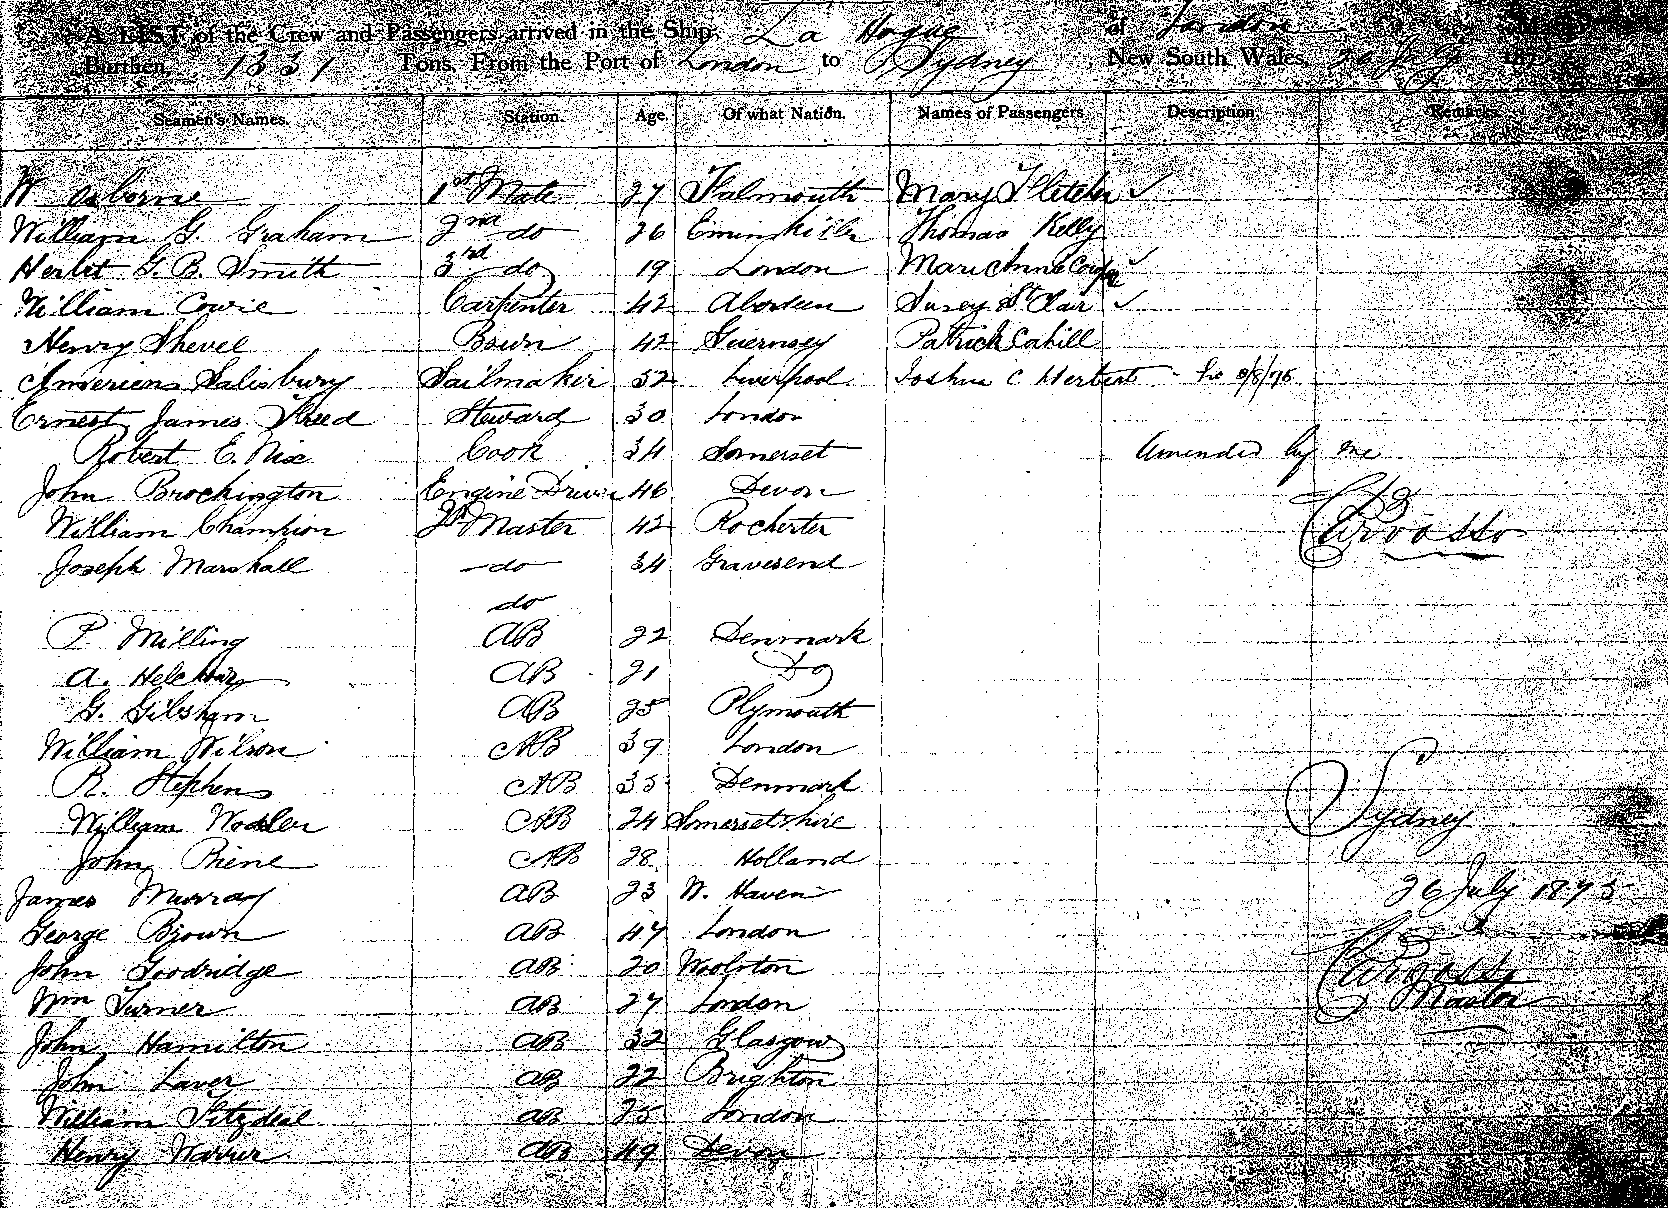 A LIST of the Crew and Passengers arrived in the Ship La Hogue of London
Burthen 1331 Tons. From the Port of London to Sydney New South Wales, 26 July 187
Seamen's Names. Station. Age. Of what Nation. Names of Passengers Description. Remarks.
W Osborne 1st Mate 27 Falmouth Mary Fletcher ✓
William G. Graham 2nd do 26 Thomas Kelly
Herbt G. B. Smith 3rd do 19 London ✓
William Cowie Carpenter 42 Aberdeen Susey St Clair ✓
Henry Shevel Boswn 42 Guernsey Patrick Cahill
Salisbury Sailmaker 52 Liverpool Joshua C Herbert
Ernest James Steward 30 London
Robert E. Nix Cook 34 Somerset Amended by me
John Brockington Engine Driver 46 Devon
William Champion Master 42 Rochester
Joseph Marshall do 34 Gravesend
do
P. Milling AB 22 Denmark
A. AB 21 Do
G. Gilsham AB 25 Plymouth
William Wilson AB 39 London
R. Stephens AB 35 Denmark
William AB 24 Somersetshire
Sydney
John AB 28 Holland
James Murray AB 23 W. Haven 26 July 1875
George Brown AB 47 London
John Goodridge AB 20 Woolston
Wm Turner AB 27 London Master
John Hamilton AB 32 Glasgow
John Laver AB 22 Brighton
William AB 25 London
Henry Warrier AB 49 Devon